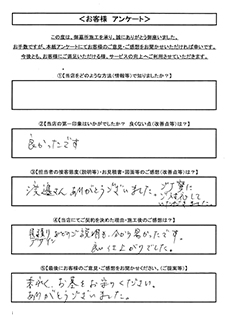 ＜お客様 アンケート＞
この度は、御墓所施工を承り、誠にありがとう御座いました。
お手数ですが、本紙アンケートにてお客様のご意見・ご感想をお聞かせいただければ幸いです。
今後とも、お客様にご満足いただける様、サービスの向上へご利用させていただきます。
【①当店をどのような方法(情報等)で知りましたか？】
【②当店の第一印象はいかがでしたか？ 良くない点(改善点等)は？】
良かったです
【③担当者の接客態度(説明等)・お見積書・図面等のご感想(改善点等)は？】
渡邉さん ありがとうございました。
丁寧に
【④当店にてご契約を決めた理由・施工後のご感想は？】
見積り などのご説明も、分かり易かったです。
デザイン
良い仕上がりでした。
【⑤最後にお客様のご意見・ご感想をお聞かせください。(ご提案等)】
末永く、お墓をお守りください。
ありがとうございました。